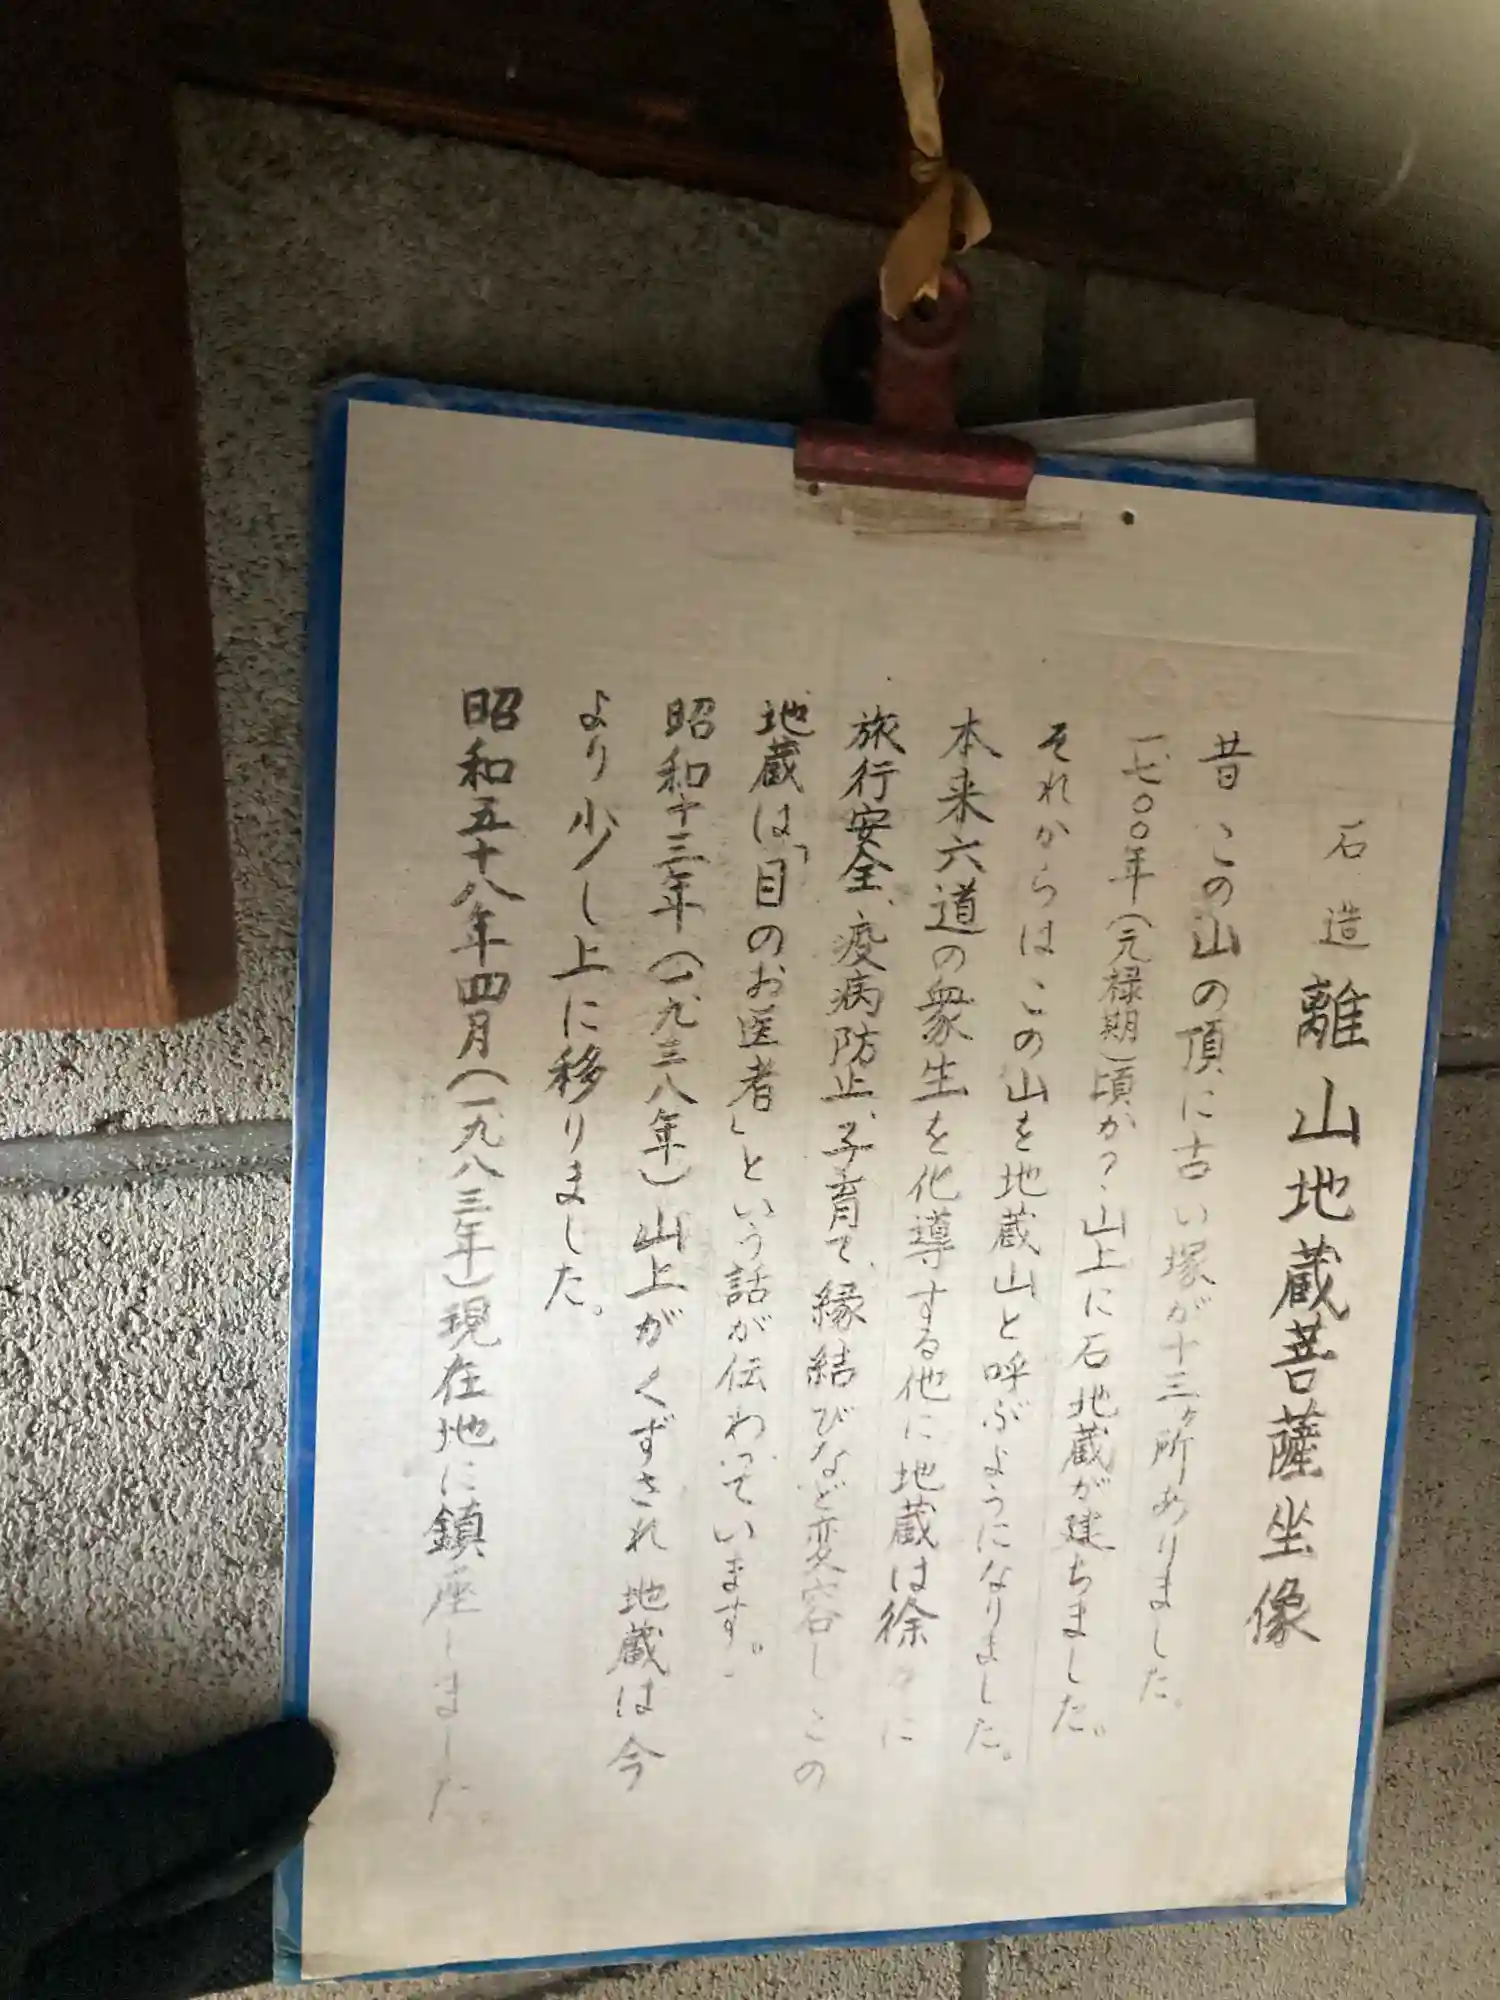 石造 離山地蔵菩薩坐像
昔 この山の頂に古い塚が十三ヶ所ありました。
一七〇〇年(元禄期)頃か?山上に石地蔵が建ちました。
それからは この山を地蔵山と呼ぶようになりました。
本来六道の衆生を化導する他に地蔵は徐々に
旅行安全、疫病防止、子育て、縁結びなど変容し この
地蔵は「目のお医者」という話が伝わっています。
昭和十三年(一九三八年)山上がくずされ 地蔵は今
より少し上に移りました。
昭和五十八年四月(一九八三年)現在地に鎮座しました。